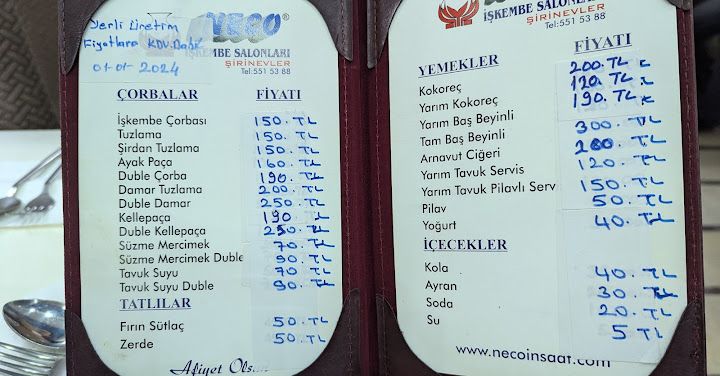 Yerli Üretim
Fiyatlara KDV Dahil
01-01-2024
NECO®
İŞKEMBE SALONLARI
ŞİRİNEVLER
Tel:551 53 88
ÇORBALAR FİYATI
İşkembe Çorbası 150.TL
Tuzlama 150.TL
Şirdan Tuzlama 150.TL
Ayak Paça 160.TL
Duble Çorba 190.TL
Damar Tuzlama 200.TL
Duble Damar 250.TL
Kellepaça 190 TL
Duble Kellepaça 250.TL
Süzme Mercimek 70.TL
Süzme Mercimek Duble 90.TL
Tavuk Suyu 70.TL
Tavuk Suyu Duble 90.TL
TATLILAR
Fırın Sütlaç 50.TL
Zerde 50.TL
Afiyet Olsun
İŞKEMBE SALONLARI
ŞİRİNEVLER
Tel:551 53 88
YEMEKLER FİYATI
Kokoreç 200.TL
Yarım Kokoreç 120.TL
Yarım Baş Beyinli 190.TL
Tam Baş Beyinli 300.TL
Arnavut Ciğeri TL
Yarım Tavuk Servis 120.TL
Yarım Tavuk Pilavlı Serv 150.TL
Pilav 50.TL
Yoğurt 40.TL
İÇECEKLER
Kola 40.TL
Ayran 30.TL
Soda 20.TL
Su 5 TL
www.necoinsaat.com